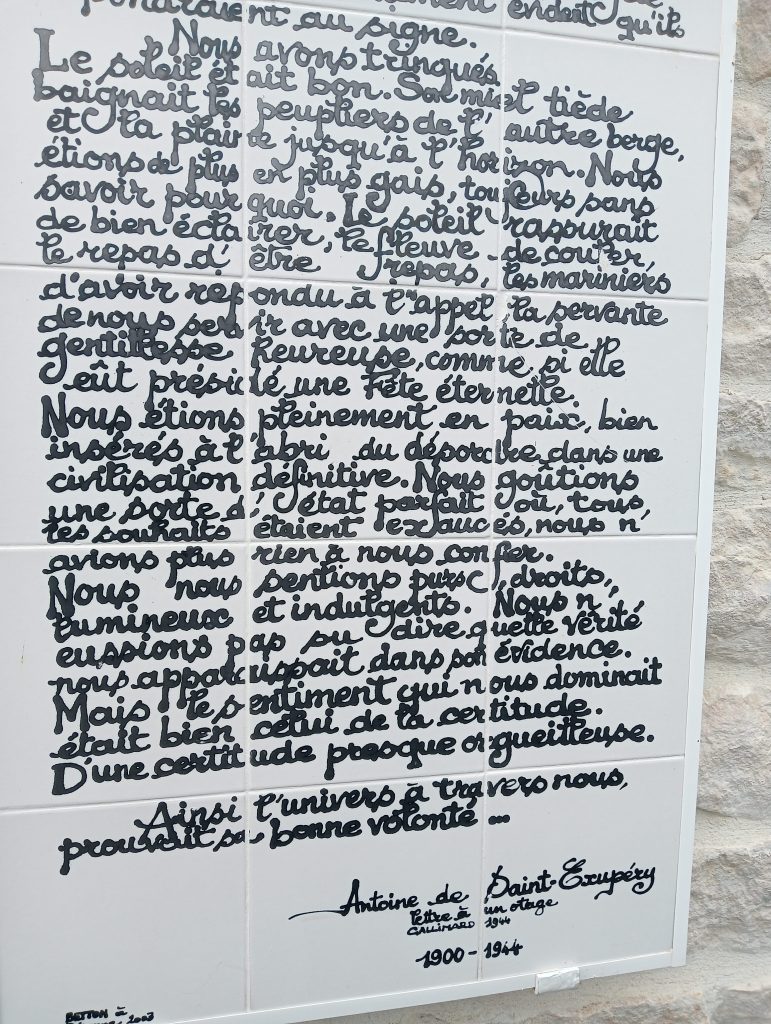 pondraient au signe. évident qu'ils
Nous avons trinqués
Le soleil était bon. Son miel tiède
baignait les peupliers de l'autre berge,
et la plaine jusqu'à l'horizon. Nous
étions de plus en plus gais, toujours sans
savoir pourquoi. Le soleil rassurait
de bien éclairer, le fleuve de couler,
le repas d'être repas, les mariniers
d'avoir répondu à l'appel, la servante
de nous servir avec une sorte de
gentillesse heureuse, comme si elle
eût présidé une Fête éternelle.
Nous étions pleinement en paix, bien
insérés à l'abri du désordre dans une
civilisation définitive. Nous goûtions
une sorte d'état parfait où, tous,
les souhaits étaient exaucés, nous n'
avions plus rien à nous confier.
Nous nous sentions purs, droits,
lumineux et indulgents. Nous n'
eussions pas su dire quelle vérité
nous apparaissait dans son évidence.
Mais le sentiment qui nous dominait
était bien celui de la certitude.
D'une certitude presque orgueilleuse.
Ainsi l'univers à travers nous,
prouvait sa bonne volonté ...
Antoine de Saint-Exupéry
lettre à un otage
GALLIMARD 1944
1900-1944
BETTON à
2003